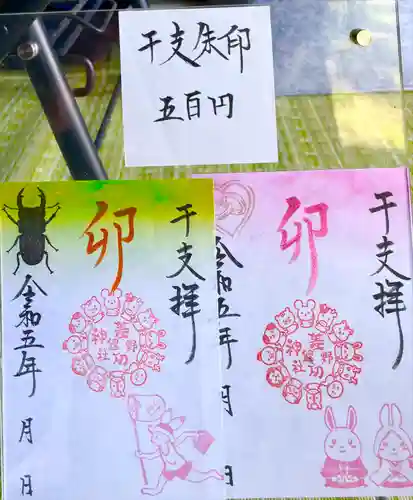 干支朱印
五百円
干支拝
卯
美野
曽和
神社
令和五年 月 日
干支拝
卯
神社
令和五年 月 日